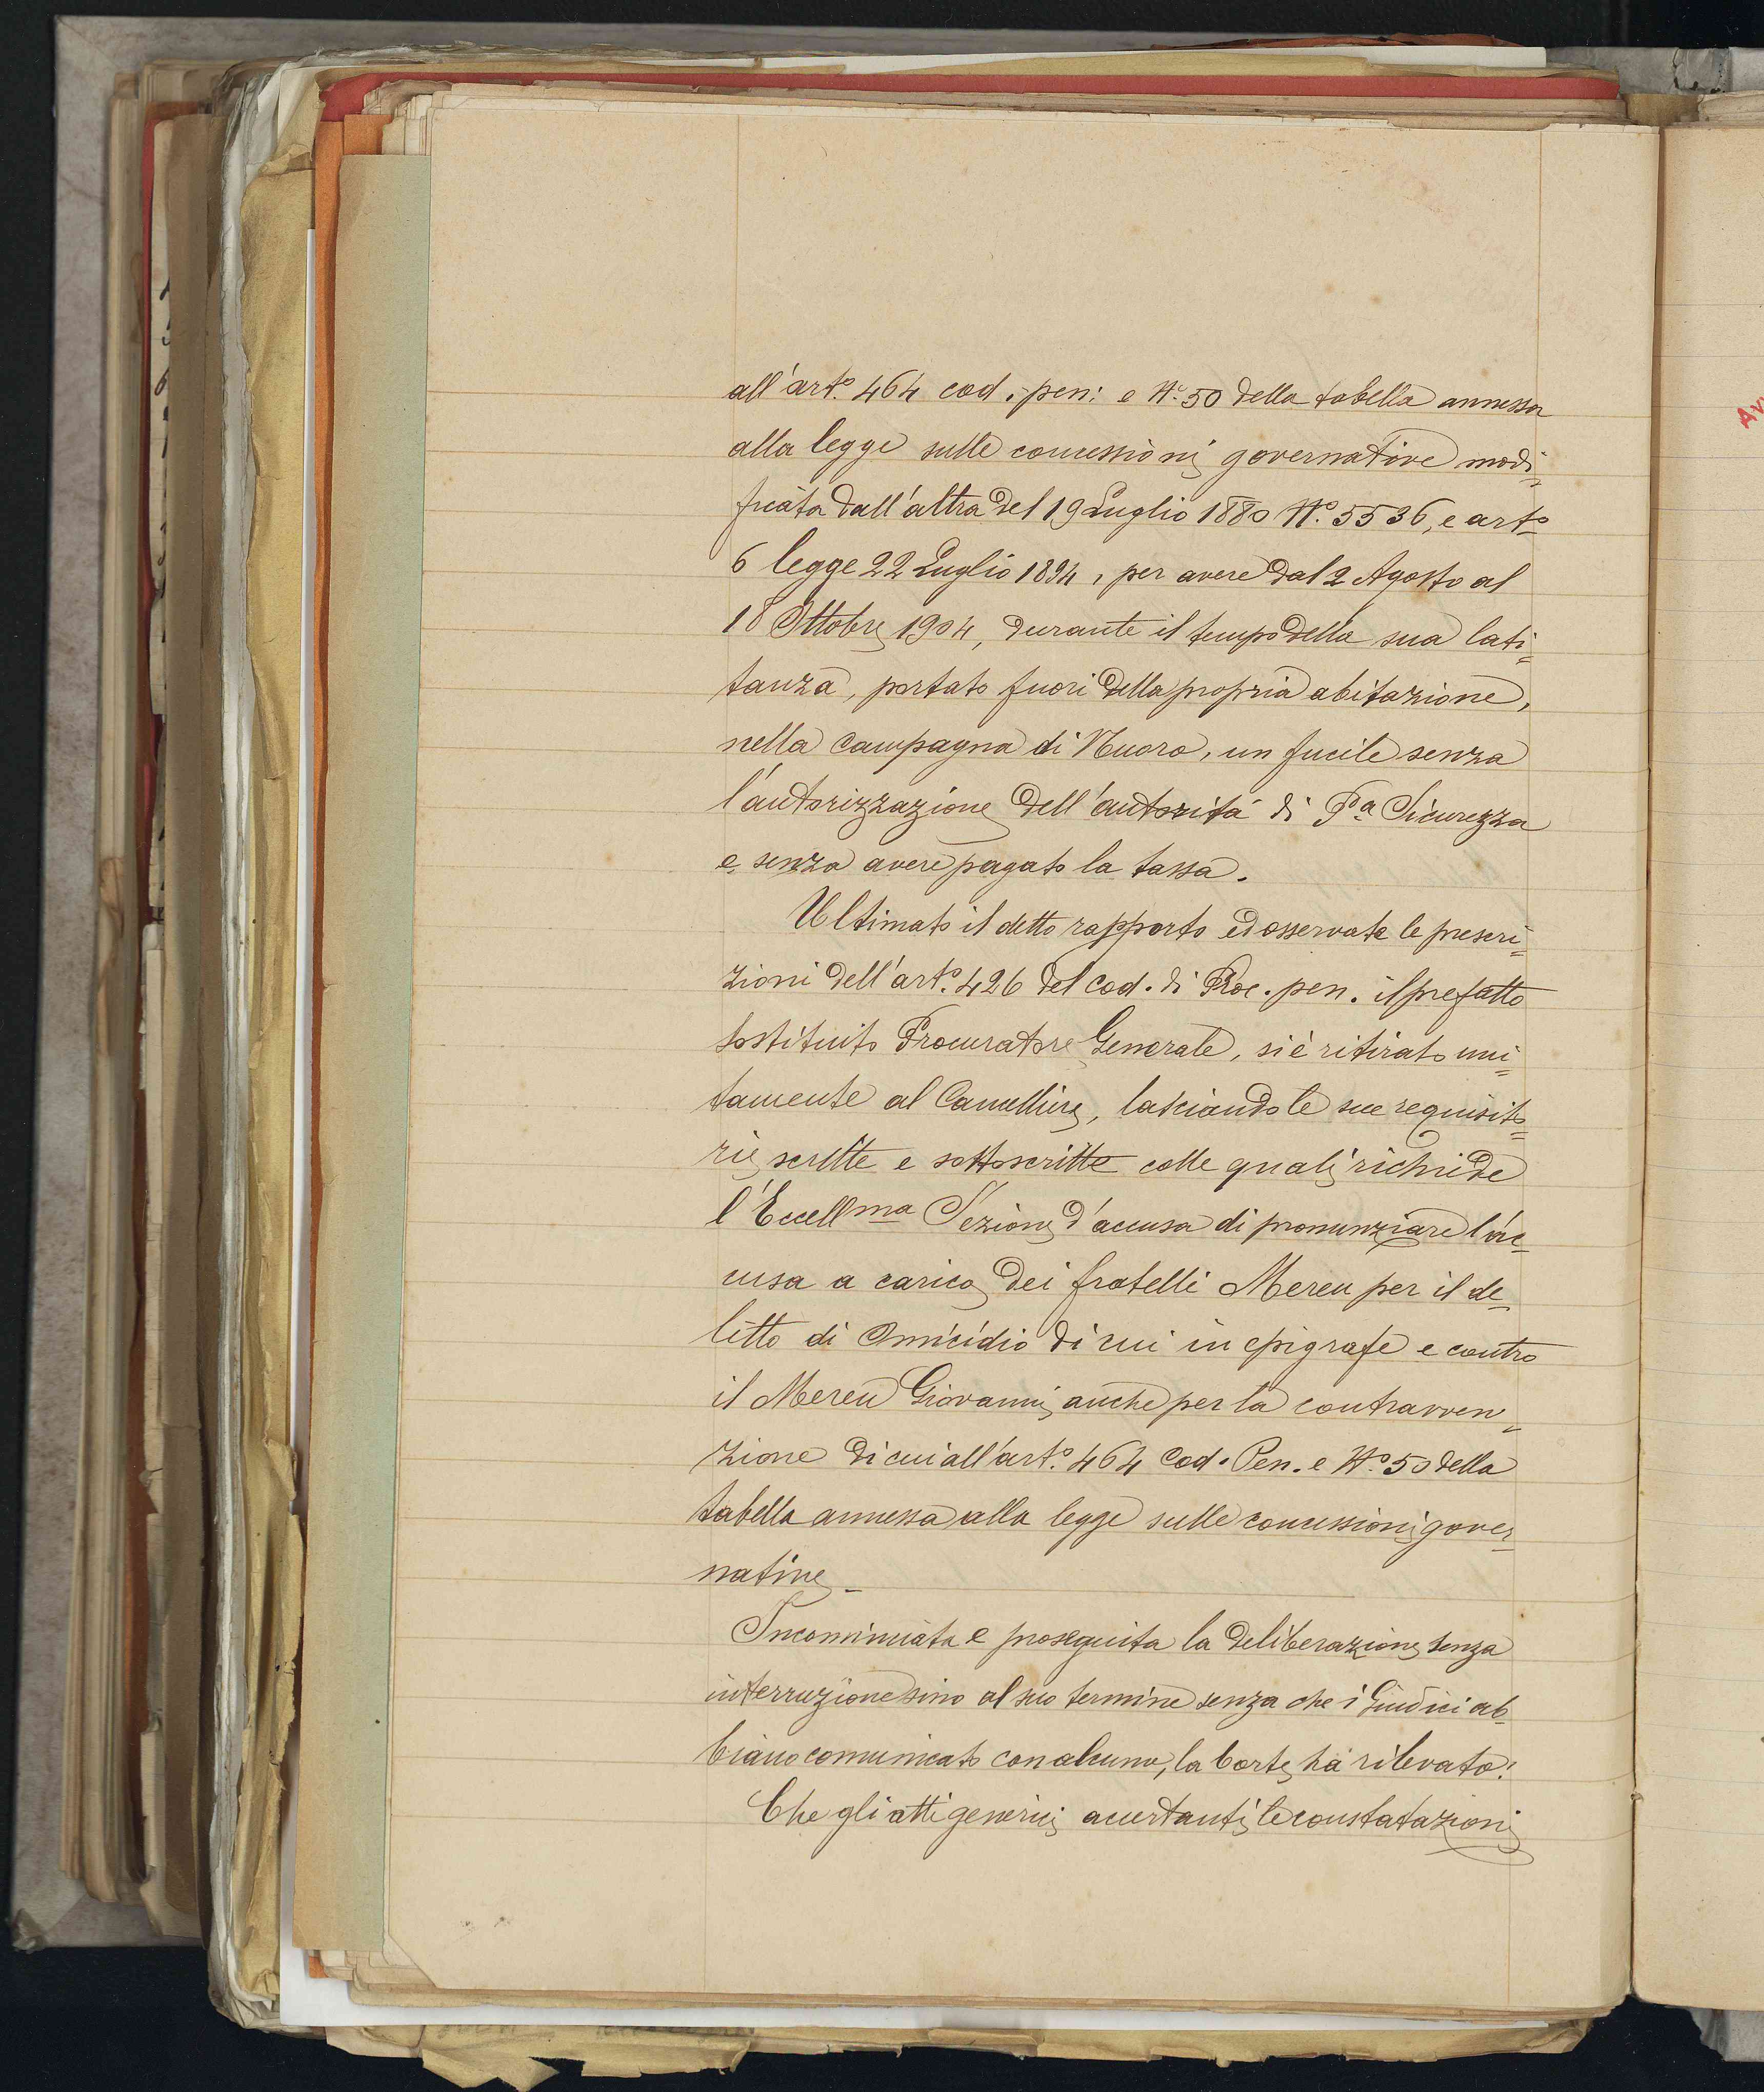 all'art.º 464 cod. pen: e Nº 50 della tabella annessa
alla legge sulle concessioni governative modi=
ficata dall'altra del 19 Luglio 1880 Nº. 5536, e artº
6 legge 22 Luglio 1894, per avere dal 2 Agosto al
18 Ottobre 1904, durante il tempo della sua lati=
tanza, portato fuori della propria abitazione,
nella campagna di Nuoro, un fucile senza
l'autorizzazione dell'autorità di Pª Sicurezza
e senza avere pagato la tassa.
Ultimato il detto rapporto ed osservate le prescri=
zioni dell'art.º 426 del Cod. di Proc. pen. il prefatto
sostituito Procuratore Generale, si è ritirato uni=
tamente al Cancelliere, lasciando le sue requisito=
rie scritte e sottoscritte colle quali richiede
l'Eccellma Sezione d'accusa di pronunziare l'ac=
cusa a carico dei fratelli Mereu per il de=
litto di Omicidio di cui in epigrafe e contro
il Mereu Giovanni anche per la contravven=
zione di cui all'art.º 464 Cod. Pen. e Nº 50 della
tabella annessa alla legge sulle concessioni gover=
native_
Incominciata e proseguita la deliberazione senza
interruzione sino al suo termine senza che i Giudici ab=
biano comunicato con alcuno, la Corte ha rilevato:
Che gli atti generici accertanti le constatazioni